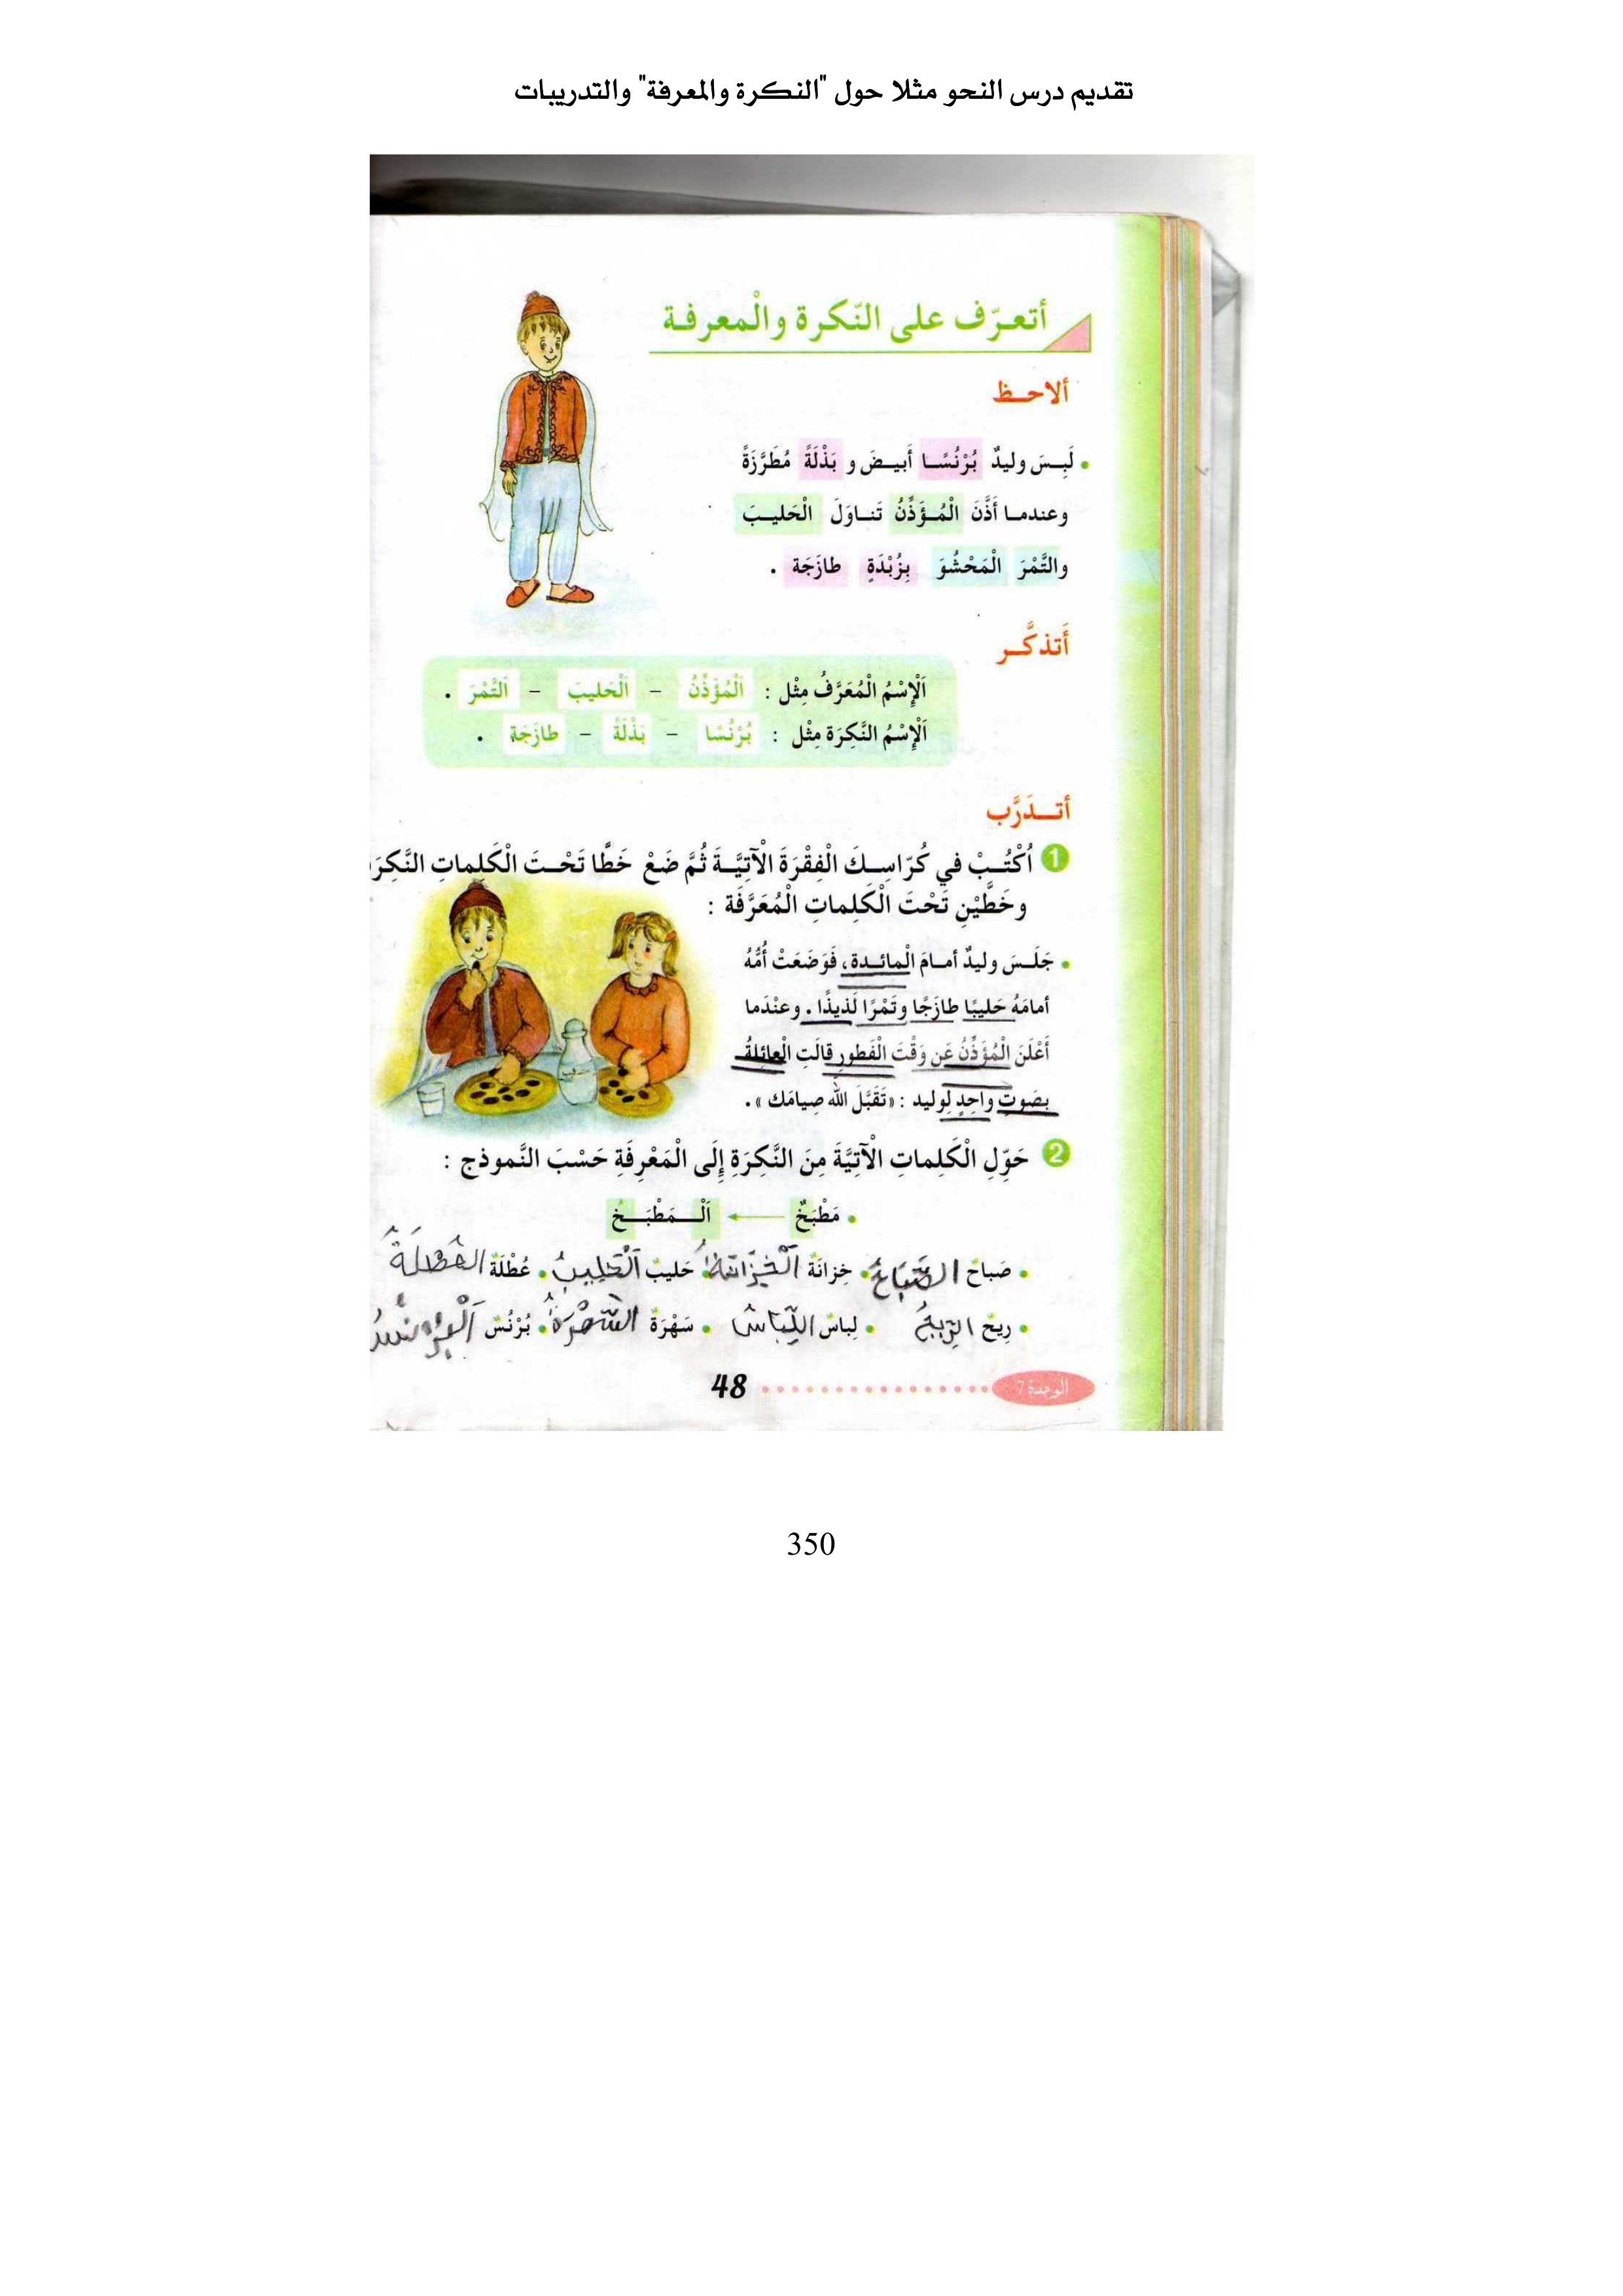 تقديم درس النحو مثلا حول "النكرة والمعرفة" والتدريبات
أتعـرّف على النّكرة والْمعرفـة
ألاحـظ
• لَبِـسَ وليدٌ بُرْنُسًـا أَبيـضَ و بَذْلَةً مُطَرَّزَةً
وعندمـا أَذَّنَ الْمُـؤَذِّنُ تَنـاوَلَ الْحَليـبَ
والتَّمْرَ الْمَحْشُوَ بِزُبْدَةٍ طازَجَة .
أَتذكَّـر
اَلْإِسْمُ الْمُعَرَّفُ مِثْل : اَلْمُؤَذِّنُ – اَلْحَليبَ – اَلتَّمْرَ .
اَلْإِسْمُ النَّكِرَة مِثْل : بُرْنُسًا – بَذْلَةً – طازَجَة .
أتـدَرَّب
1 اُكْتُـبْ في كُرّاسِـكَ الْفِقْرَةَ الْآتِيَّـةَ ثُمَّ ضَعْ خَطًّا تَحْـتَ الْكَلِماتِ النَّكِرَ
وخَطَّيْنِ تَحْتَ الْكَلِماتِ الْمُعَرَّفَة :
• جَلَـسَ وليدٌ أمـامَ الْمائـدة، فَوَضَعَتْ أُمُّهُ
أمامَهُ حَليبًا طازَجًا وتَمْرًا لَذيذًا . وعنْدَما
أَعْلَنَ الْمُؤَذِّنُ عَن وَقْتَ الْفَطورِ قالَتِ الْعائِلةُ
بِصَوتٍ واحِدٍ لِوليد : «تَقَبَّلَ الله صِيامَك ».
2 حَوِّلِ الْكَلِماتِ الْآتِيَّةَ مِنَ النَّكِرَةِ إِلَى الْمَعْرِفَةِ حَسْبَ النَّموذج :
• مَطْبَخٌ ← اَلْـمَطْبَـخُ
• صَباحٌ الصَّبَاحُ • خِزانَةٌ اَلْخِزَانَةُ • حَليبٌ اَلْحَلِيبُ • عُطْلَةٌ العُطْلَةُ
• ريحٌ الرِّيحُ • لِباسٌ اللِّبَاسُ • سَهْرَةٌ السَّهْرَةُ • بُرْنُسٌ اَلْبُرْنُسُ
الوحدة 7 48
350